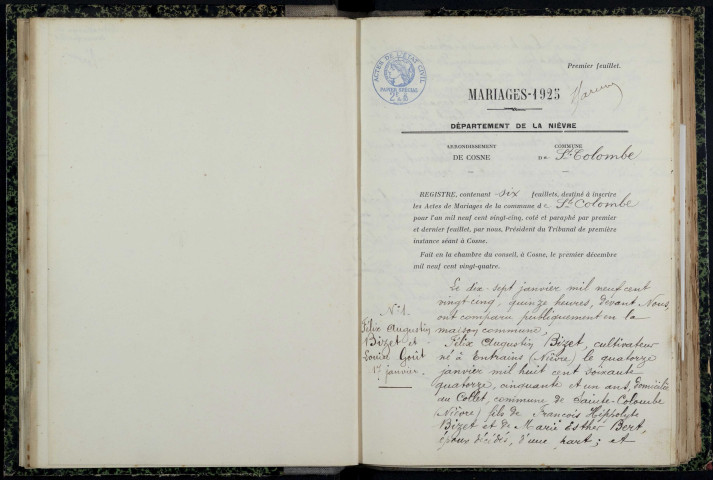 Premier feuillet.
ACTES DE L'ÉTAT CIVIL
MARIAGES-1925
DÉPARTEMENT DE LA NIÈVRE
ARRONDISSEMENT
DE COSNE
COMMUNE
DE Ste Colombe
REGISTRE, contenant six feuillets, destiné à inscrire
les Actes de Mariages de la commune de Ste Colombe
pour l'an mil neuf cent vingt-cinq, coté et paraphé par premier
et dernier feuillet, par nous, Président du Tribunal de première
instance séant à Cosne.
Fait en la chambre du conseil, à Cosne, le premier décembre
mil neuf cent vingt-quatre.
N° 1.
Félix Augustin
Bizet et
Louise Goût
17 janvier.
Le dix-sept janvier mil neuf cent
vingt cinq, quinze heures, devant Nous
ont comparu publiquement en la
maison commune,
Félix Augustin Bizet, cultivateur
né à Entrains (Nièvre) le quatorze
janvier mil huit cent soixante
quatorze, cinquante et un ans, domicilié
au Collet, commune de Sainte-Colombe
(Nièvre) fils de François Hippolyte
Bizet et de Marie Esther Bert,
époux décédés, d'une part; et